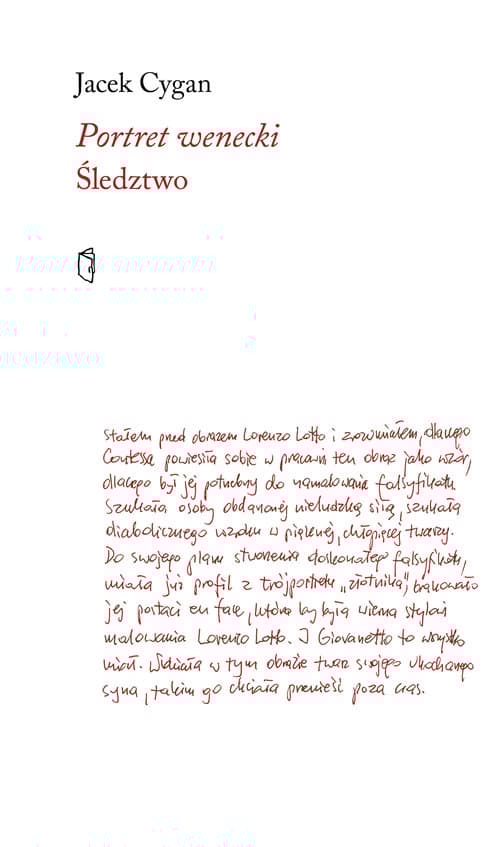 Jacek Cygan
Portret wenecki
Śledztwo
Stałem pred obrazem Lorenzo Lotto i zrozumiałem, dlaczego
Contessa powiesiła sobie w pracowni ten obraz jako wzór,
dlaczego był jej potrzebny do namalowania falsyfikatu.
Szukała osoby obdarzonej nieludzką siłą, szukała
diabolicznego wzroku w pięknej, chłopięcej twarzy.
Do swojego planu stworzenia doskonałego falsyfikatu,
miała już profil z trójportretu „złotnika", brakowało
jej postaci en face, która by była wierna stylowi
malowania Lorenzo Lotto. I Giovanetto to wszystko
miał. Widziała w tym obrazie twarz swojego ukochanego
syna, takim go chciała przenieść poza czas.